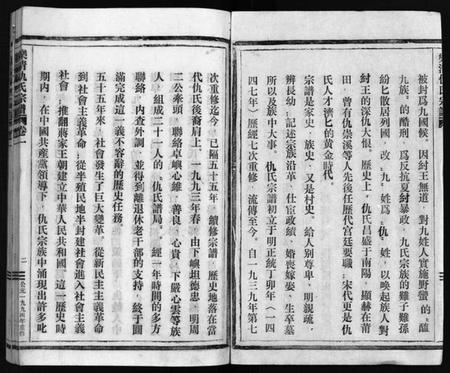 被封爲九國候，因封王無道，對九姓人實施野蠻的『醢
九族』的酷刑，爲反抗夏紂暴政，九氏宗族的難子難孫
紛匕散居列國，改『九』姓爲『仇』姓，以喚起族人對
紂王的深仇大恨。歷史上，仇氏昌盛于南陽，顯赫在莆
田，曾有仇崇溪等人先後任歷代宫廷要職，宋代更是仇
氏人才濟匕的黄金時代。
宗譜是家史、族史，又是村史，給人别尊卑，明親疏，
辨長幼，記述宗族沿革、仕宦政績、婚喪嫁娶、生卒墓
所以及族中大事。仇氏宗譜初立于明正統丁卯年（一四
四七年）歷經七次重修，流傳至今。自一九三九年第七
次重修迄今，已隔五十五年，續修宗譜，歷史地落在當
代仇氏後裔肩上。一九九三年春，由下嶼坦德忠、明周
二公牽頭，聯絡卓嶼心維、善良、心貴，下嚴心雲等族
人，組成二十一人的仇氏譜局，經一年時間的多方
聯絡，内查外調，並得到離退休老干部的支持，終于圓
滿完成這一義不容辭的歷史任務。
五十五年來，社會發生了巨大變革，從新民主主義革命
到社會主義革命；從半殖民地半封建社會進入社會主義
社會；推翻蔣家王朝建立中華人民共和國，這一歷時
期内，在中國共産黨領導下，仇氏宗族中涌現出許多叱
樂清仇氏宗譜 卷一
二
公元一九九四年重修